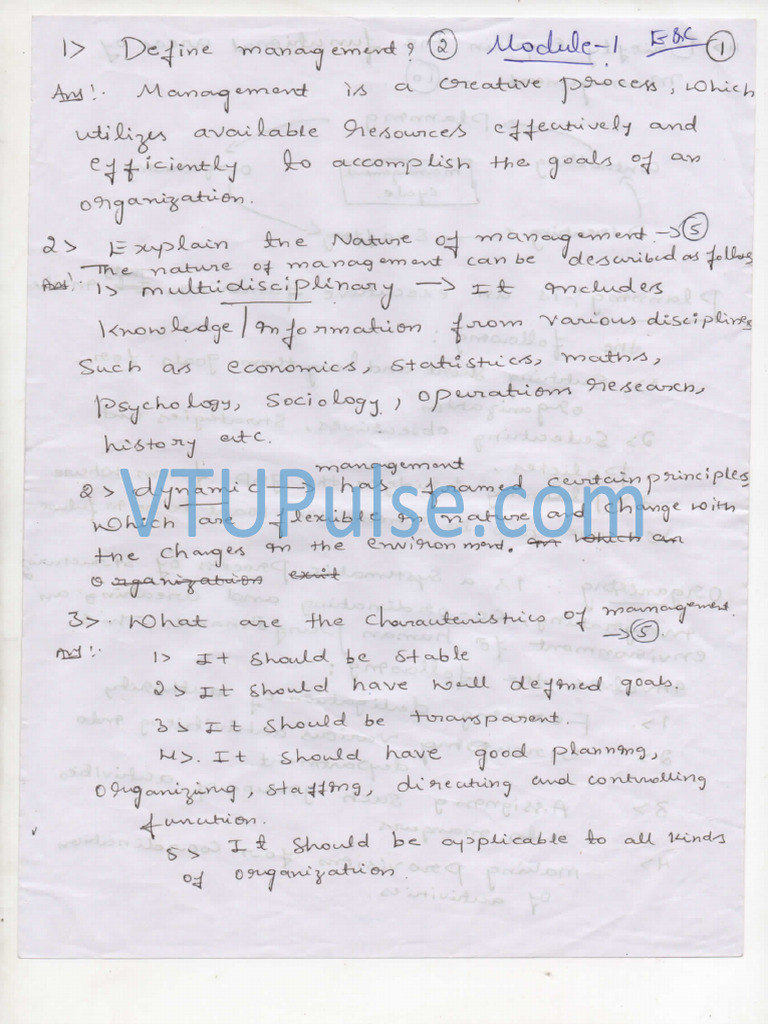 1> Define management? ② Module-1 E&C ①
Ans!. Management is a creative process, which
utilizes available resources effectively and
efficiently to accomplish the goals of an
organization.
2> Explain the Nature of management. → ⑤
The nature of management can be described as follows
Ans!. 1> multidisciplinary → It includes
knowledge/information from various disciplines
Such as economics, statistics, maths,
psychology, sociology, operations research,
history etc.
management
2> dynamic → has framed certain principles
which are flexible in nature and change with
the changes in the environment. an which an
organization exist
VTUPulse.com
3>. What are the characteristics of management.
→ ⑤
Ans!. 1> It should be stable
2> It should have well defined goals.
3> It should be transparent.
4>. It should have good planning,
organizing, staffing, directing and controlling
function.
5> It should be applicable to all kinds
of organization.